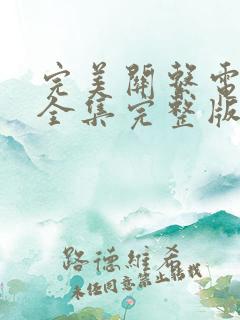 完美關繫電
全集完整版
路德維希
未经同意禁止转载